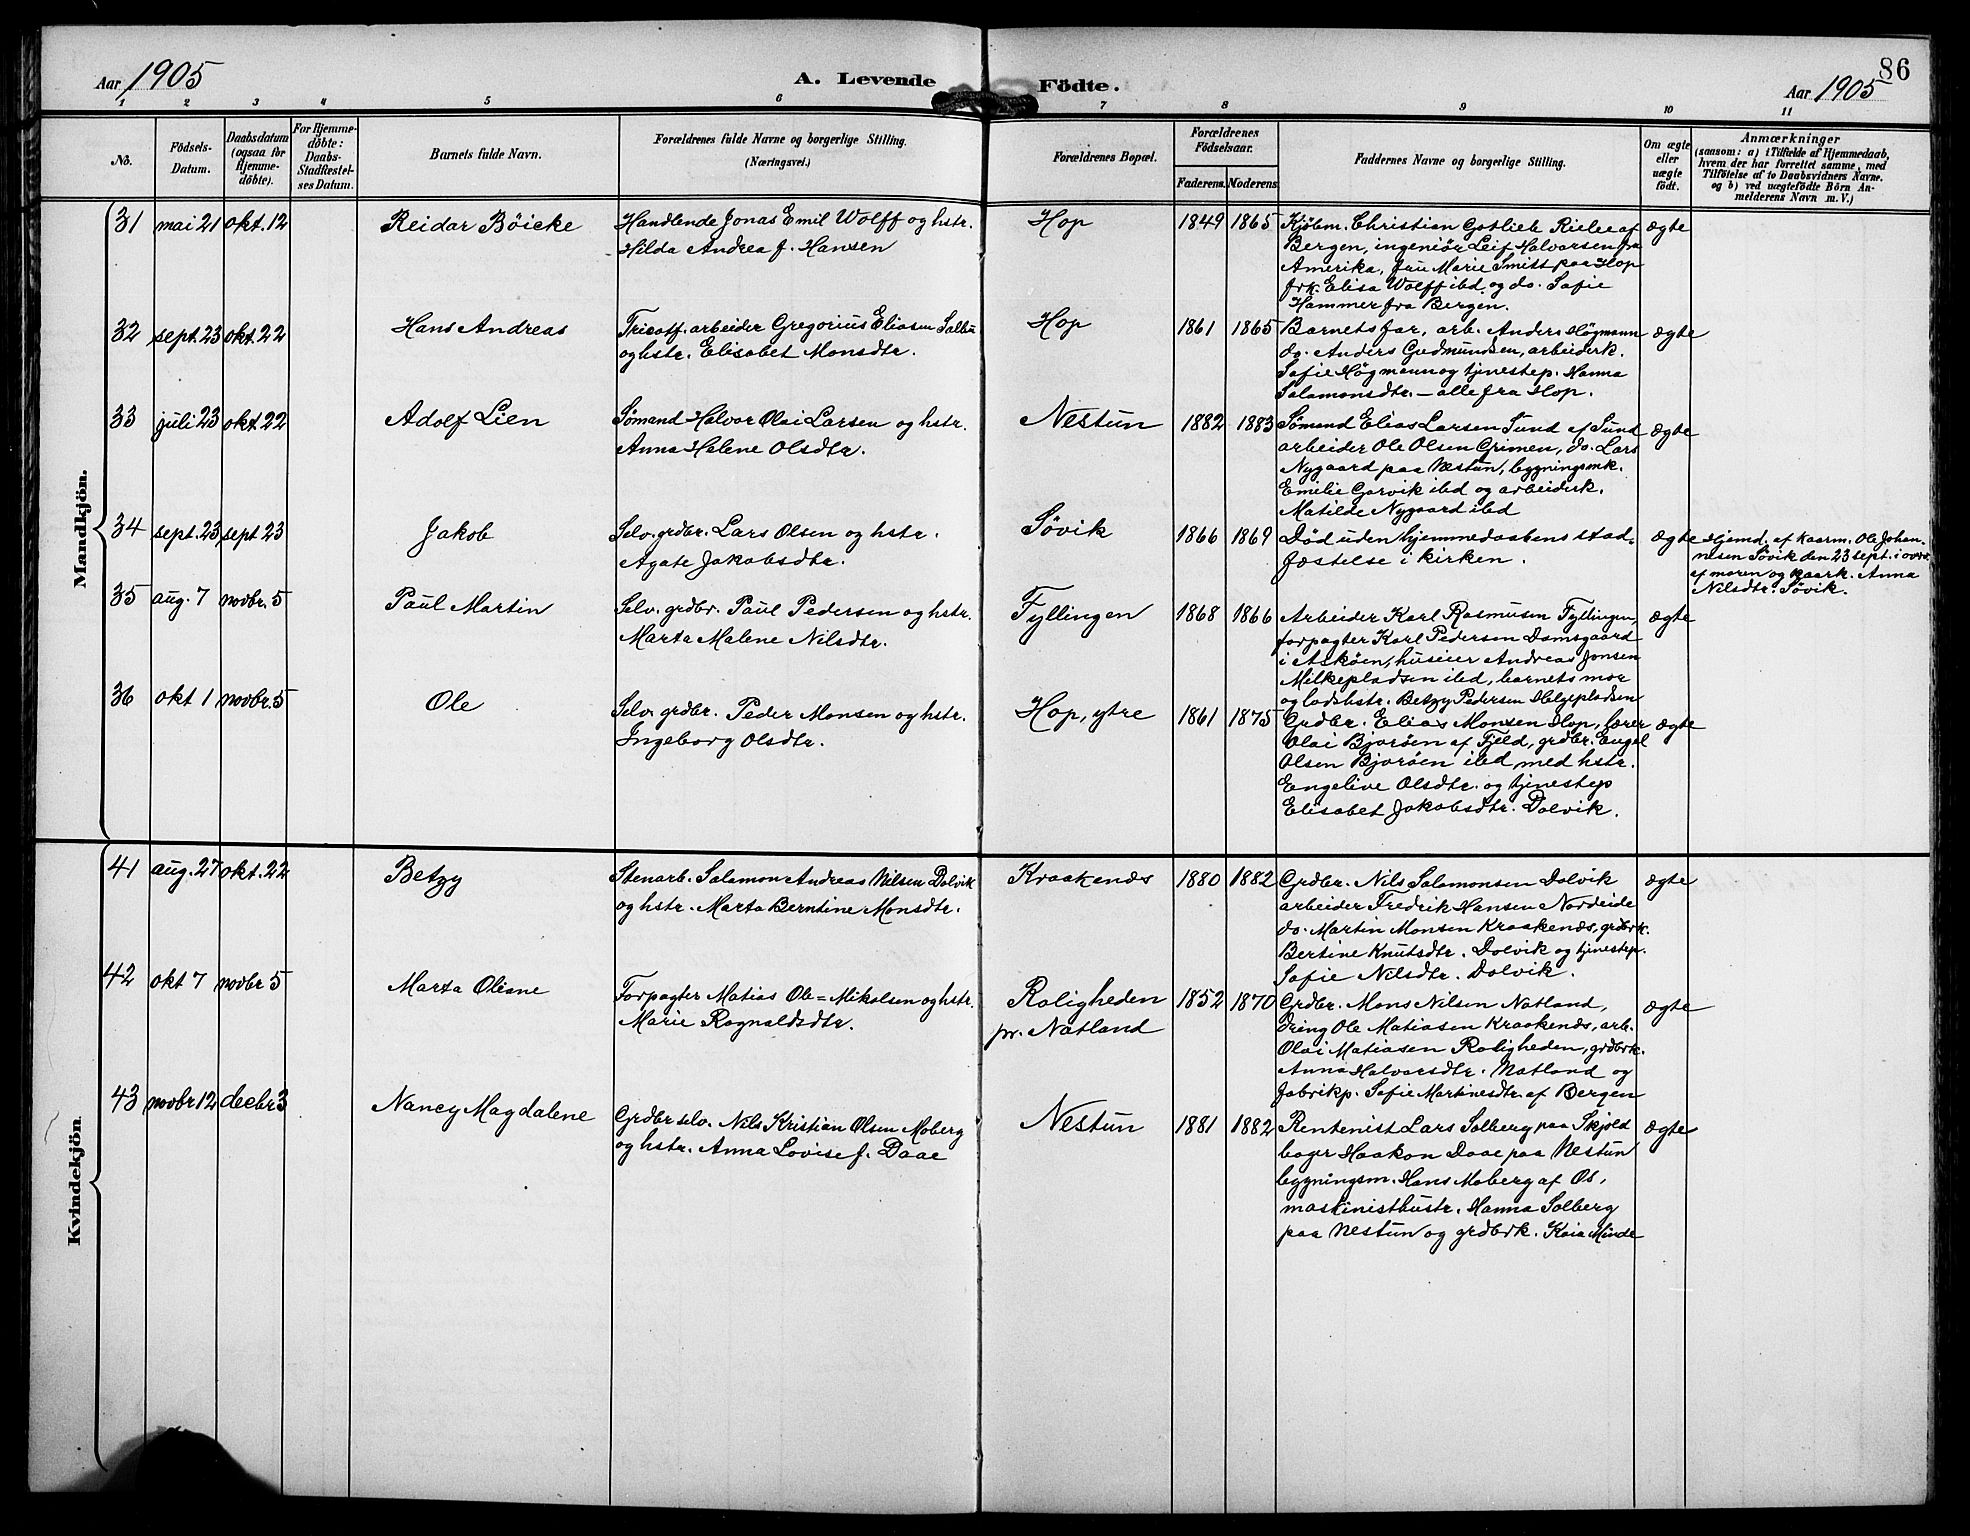 Aar 1905
A. Levende
Födte.
Aar 1905
86
1 2 3 4 5 6 7 8 9 10 11
No.
Födsels-
Datum.
Daabsdatum
(ogsaa for
Hjemme-
döbte).
For Hjemme-
döbte:
Daabs-
Stadfæstel-
ses Datum.
Barnets fulde Navn.
Forældrenes fulde Navne og borgerlige Stilling.
(Næringsvei.)
Forældrenes Bopæl.
Forældrenes
Födselsaar.
Faderens. Moderens.
Faddernes Navne og borgerlige Stilling.
Om ægte
eller
uægte
födt.
Anmærkninger
(saasom: a) i Tilfælde af Hjemmedaab,
hvem der har forrettet samme, med
Tilföielse af to Daabsvidners Navne.
og b) ved uægtefödte Börn An-
melderens Navn m. V.)
Mandkjön.
31 mai 21 okt. 12 Reidar Böicke
Handlende Jonas Emil Wolff og hstr.
Hilda Andrea f. Hansen
Hop 1849 1865
Kjöbm. Christian Gotlieb Rielee af
Bergen, ingeniör Leif Halvorsen fra
Amerika, fru Marie Smitt paa Hop
frk. Elisa Wolff ibd. og do. Sofie
Hammer fra Bergen.
ægte
32 sept. 23 okt. 22 Hans Andreas
Tricotf. arbeider Gregorius Eliasen Salbu
og hstr. Elisabet Monsdtr.
Hop 1861 1865
Barnets far, arb. Anders Högmann
do. Anders Gudmundsen, arbeiderk.
Sofie Högmann og tjenestep. Hanna
Salamonsdtr. – alle fra Hop.
ægte
33 juli 23 okt. 22 Adolf Lien
Sömand Halvor Olai Larsen og hstr.
Anna Helene Olsdtr.
Nestun 1882 1883
Sömand Elias Larsen Sund af Sund
arbeider Ole Olsen Grimen, do. Lars
Nygaard paa Nestun, bygningsmk.
Emilie Garvik ibd og arbeiderk.
Matilde Nygaard ibd
ægte
34 sept. 23 sept 23 Jakob
Selv. grdbr. Lars Olsen og hstr.
Agate Jakobsdtr.
Sövik 1866 1869
Död uden hjemmedaabens stad-
fæstelse i kirken.
ægte
Hjemd. af kaarm. Ole Johan-
nesen Sövik den 23 sept. i overv.
af moren og kaark. Anna
Nilsdtr. Sövik.
35 aug. 7 novbr. 5 Paul Martin
Selv. grdbr. Paul Pedersen og hstr.
Marta Malene Nilsdtr.
Fyllingen 1868 1866
Arbeider Karl Rasmusen Fyllingen,
forpagter Karl Pedersen Damsgaard
i Asköen, huseier Andreas Jonsen
Milkepladsen ibd, barnets mor
og losshstr. Betzy Pedersen Helgepladsen
ægte
36 okt 1 novbr. 5 Ole
Selv. grdbr. Peder Monsen og hstr.
Ingeborg Olsdtr.
Hop, ytre 1861 1875
Grdbr. Elias Monsen Hop, lærer
Olai Bjoröen af Fjeld, grdbr. Engel
Olsen Bjoröen ibd, med hstr.
Engelive Olsdtr. og tjenestep
Elisabet Jakobsdtr. Dolvik.
ægte
Kvindekjön
41 aug. 27 okt. 22 Betzy
Stenarb. Salamon Andreas Nilsen Dolvik
og hstr. Marta Berntine Monsdtr.
Kraakenes 1880 1882
Grdbr. Nils Salamonsen Dolvik
arbeider Fredrik Hansen Nordeide
do. Martin Monsen Kraakenes, grdbrk.
Bertine Knutsdtr. Dolvik og tjenestep.
Sofie Nilsdtr. Dolvik.
ægte
42 okt 7 novbr 5 Marta Oliane
Forpagter Matias Ole=Mikalsen og hstr.
Marie Ragnaldsdtr.
Roligheden
pr. Natland
1852 1870
Grdbr. Mons Nilsen Natland,
dreng Ole Matiasen Kraakenes, arb.
Olai Matiasen Roligheden, grdbrk.
Anna Halvorsdtr. Natland og
fabrikp. Sofie Martinesdtr. af Bergen
ægte
43 novbr 12 decbr 3 Nancy Magdalene
Grdbr selv. Nils Kristian Olsen Moberg
og hstr. Anna Lovise f. Daae
Nestun 1881 1882
Rentenist Lars Solberg paa Skjold
bager Haakon Daae paa Nestun
bygningsm. Hans Moberg af Os,
maskinisthustr. Hanna Solberg
paa Nestun og grdbrk. Kaia Minde
ægte